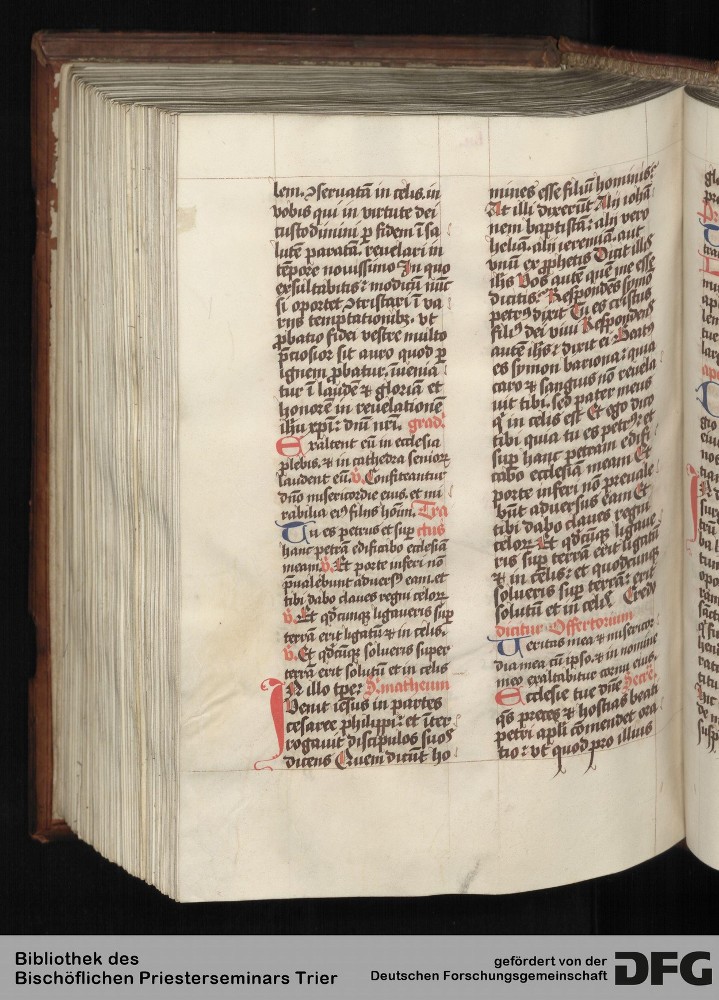 lem. ↄseruatā in celis. in
vobis qui in virtute dei
custodimini ꝑ fidem ī sa
lutē paratā. reuelari in
tēpore nouissimo In quo
exsultabitis: modicū nūc
si oportet ↄtristari ī va
rijs temptationibꝫ. vt
ꝓbatio fidei vestre multo
p̄ciosior sit auro quod ꝑ
ignem ꝓbatur. īuenia
tur ī laudē ⁊ gloriā et
honorē in reuelationē
ihū xpī: dnī nrī. grad.
Exaltent eū in ecclesia
plebis. ⁊ in cathedra senioꝝ
laudent eū. v̄. Confiteantur
dnō misericordie eius. et mi
rabilia eiꝰ filijs hoīm. Tra
Tu es petrus et suꝑ ctus
hanc petrā edificabo ecclesiā
meam. v̄. Et porte inferi nō
p̄ualebunt aduersꝰ eam. et
tibi dabo claues regni celoꝝ
v̄. Et qd̄cūqꝫ ligaueris suꝑ
terrā erit ligatū ⁊ in celis.
v̄. Et qd̄cūqꝫ solueris super
terrā erit solutū et in celis
IN illo tꝑe: S. matheum
Venit iesus in partes
cesaree philippi: et īter
rogauit discipulos suos
dicens Quem dicūt ho
mines esse filiū hominis:
At illi dixerūt Alij iohā
nem baptistā: alij vero
heliā. alij ieremiā. aut
vnū ex ꝓphetis Dicit illis
ihs Vos autē quē me esse
dicitis: Respondēs symō
petrꝰ dixit Tu es cristus
filiꝰ dei viui Respondens
autē ihs: dixit ei Beatꝰ
es symon bariona: quia
caro ⁊ sanguis nō reuela
uit tibi. sed pater meus
q̄ in celis est Et ego dico
tibi quia tu es petrꝰ: et
suꝑ hanc petram edifi
cabo ecclesiā meam Et
porte inferi nō preuale
būt aduersus eam Et
tibi dabo claues regni
celoꝝ Et qd̄cūqꝫ ligaue
ris suꝑ terrā erit ligatū
⁊ in celis: et quodcunqꝫ
solueris suꝑ terrā: erit
solutū et in celis Credo
dicitur Offertorium
Veritas mea ⁊ misericor
dia mea cū ipso. ⁊ in nomine
meo exaltabitur cornu eius.
Ecclesie tue dn̄e Secre.
qs̄ preces ⁊ hostias beati
petri apłi cōmendet ora
tio: vt quod pro illius
Bibliothek des
Bischöflichen Priesterseminars Trier
gefördert von der
Deutschen Forschungsgemeinschaft
DFG